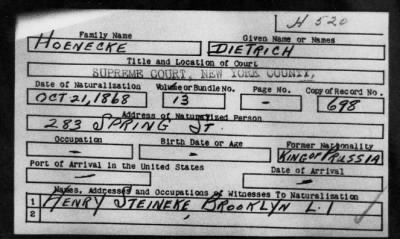 H 520
Family Name Given Name or Names
HOENECKE DIETRICH
Title and Location of Court
SUPREME COURT, NEW YORK COUNTY,
Date of Naturalization Volume or Bundle No. Page No. Copy of Record No.
OCT 21, 1868 13 - 698
Address of Naturalized Person
283 SPRING ST.
Occupation Birth Date or Age Former Nationality
- - KING OF PRUSSIA
Port of Arrival in the United States Date of Arrival
- -
Names, Addresses and Occupations of Witnesses To Naturalization
1 HENRY STEINEKE BROOKLYN L.I
2